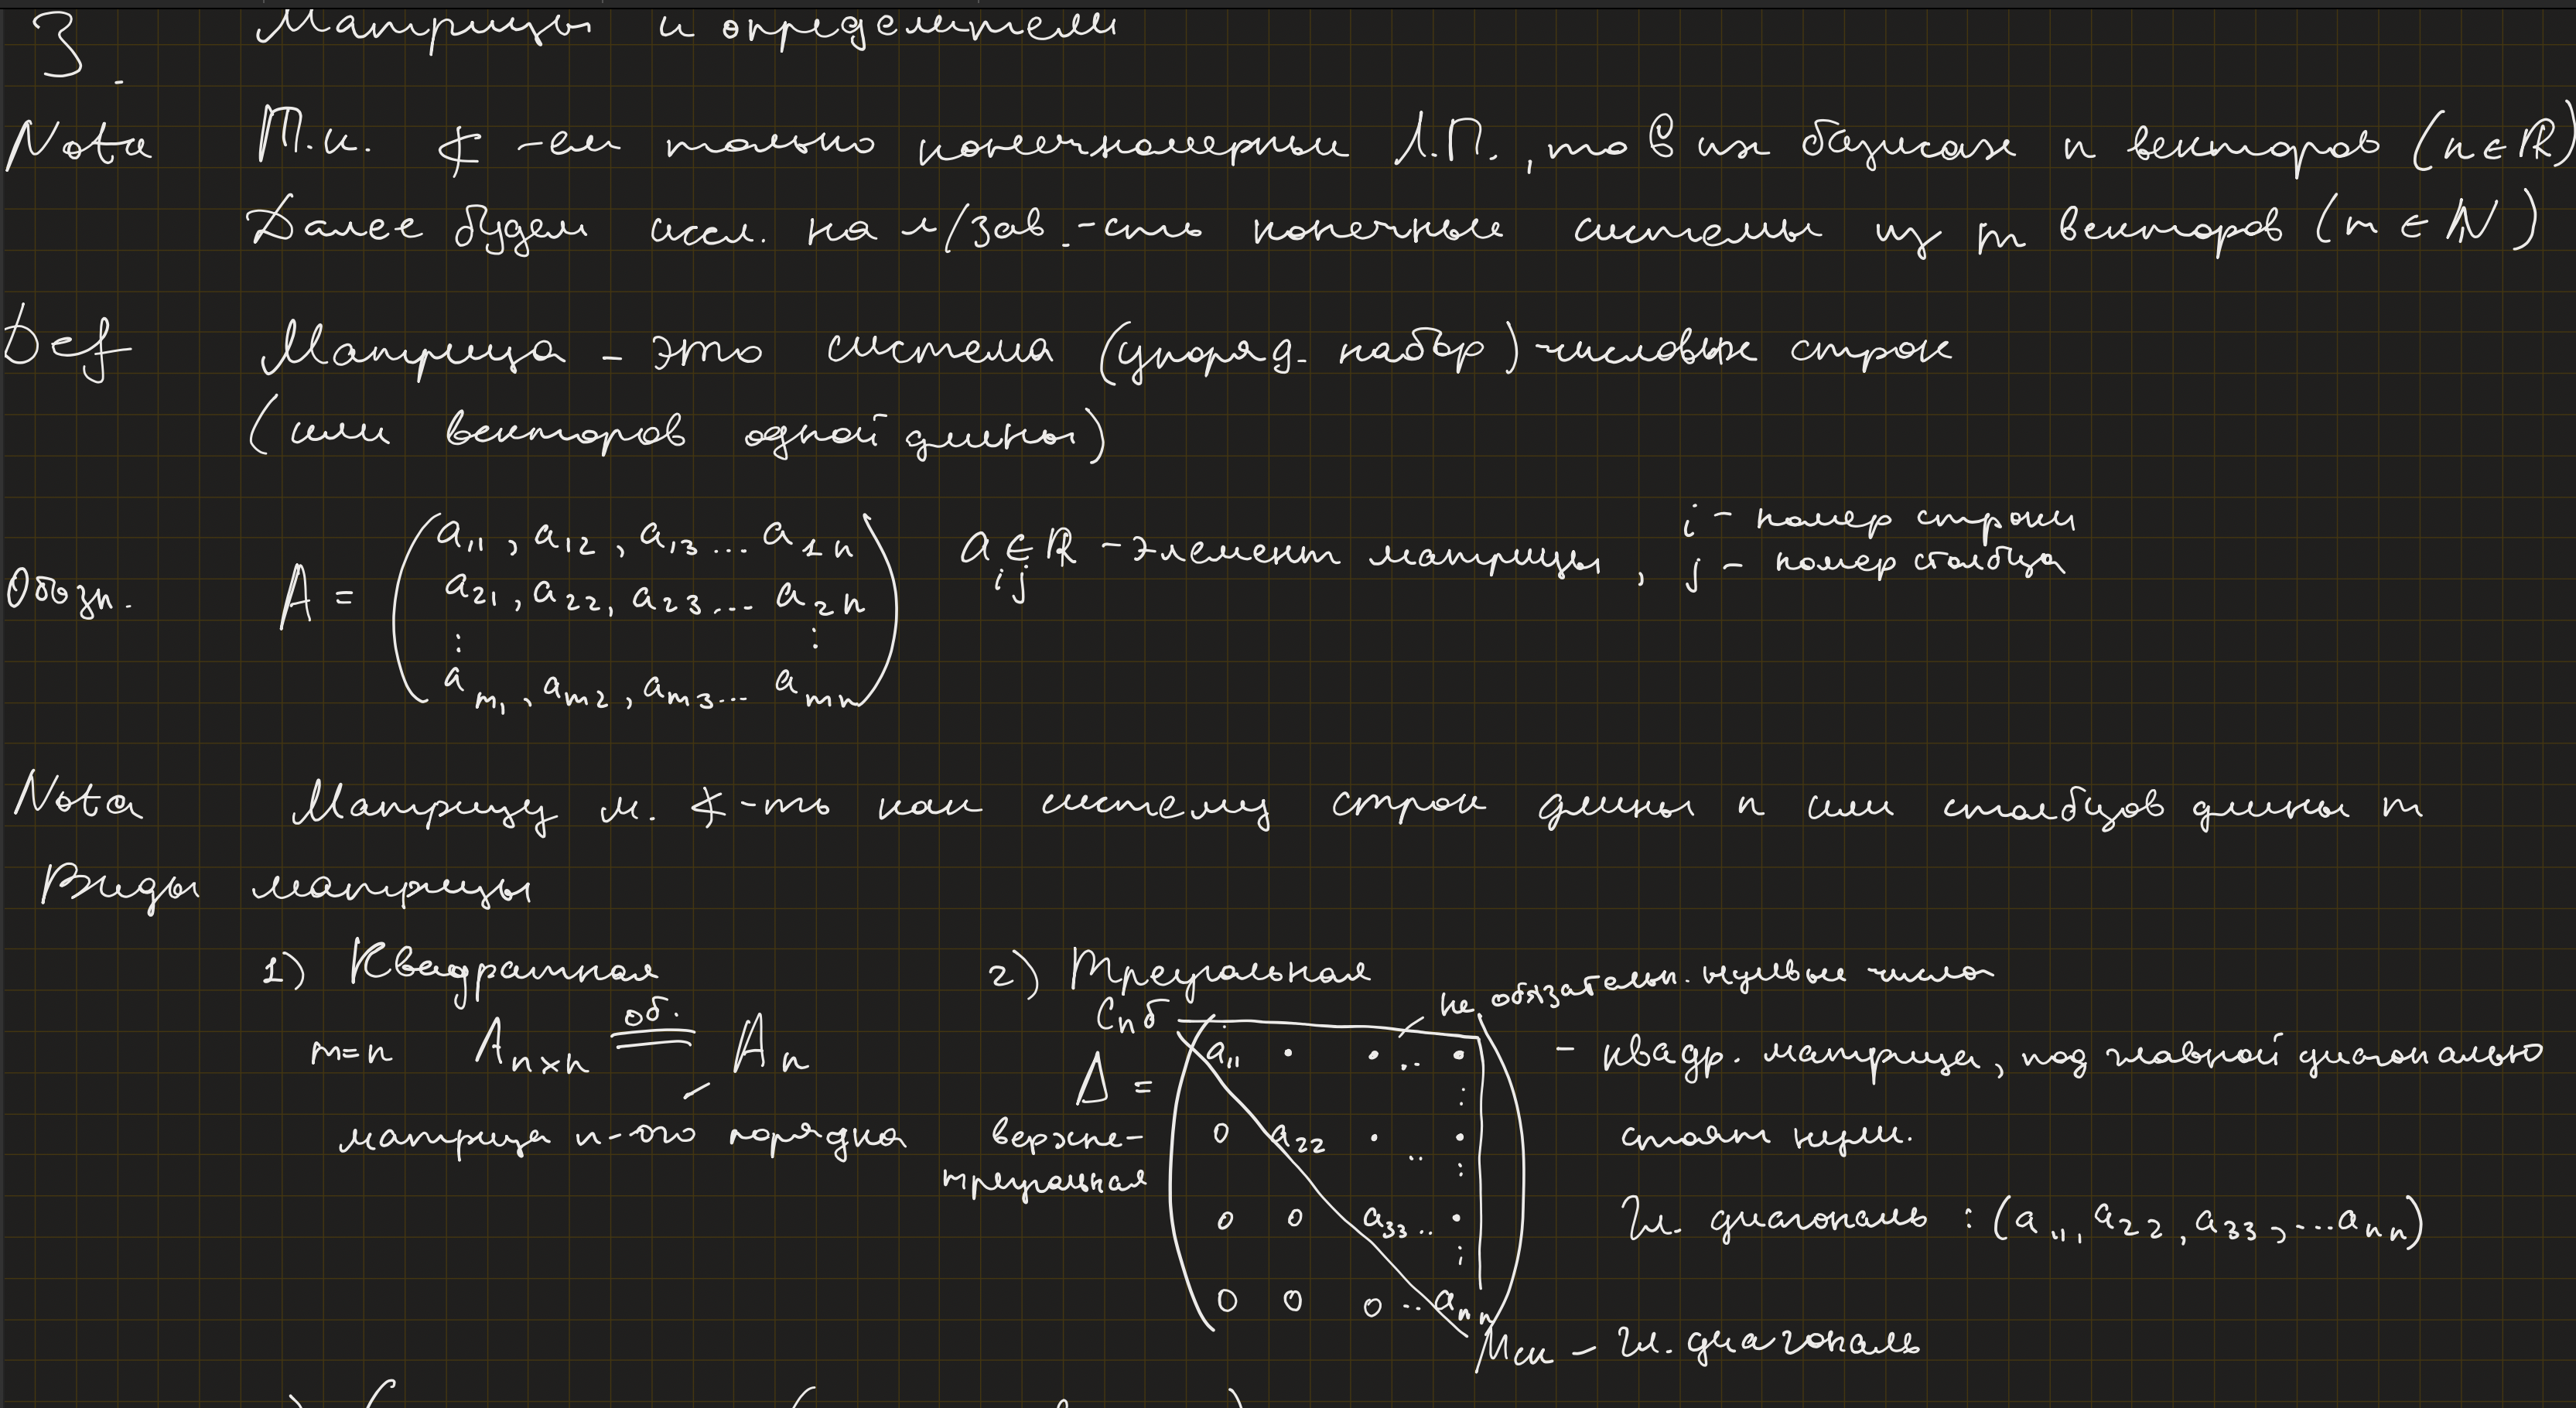 3. Матрицы и определители
Nota Т.к. ∢-ем только конечномерные Л.П., то в их базисах n векторов (n ∈ ℝ)
Далее будем иссл. на л/зав.-сть конечные системы из m векторов (m ∈ ℕ)
Def Матрица - это система (упоряд. набор) числовых строк
(или векторов одной длины)
Обозн. A = ( a₁₁, a₁₂, a₁₃ ... a₁ₙ
a₂₁, a₂₂, a₂₃ ... a₂ₙ
⋮ ⋮
aₘ₁, aₘ₂, aₘ₃ ... aₘₙ )
a_ij ∈ ℝ - элемент матрицы, i - номер строки
j - номер столбца
Nota Матрицу м. ∢-ть как систему строк длины n или столбцов длины m
Виды матрицы
1) Квадратная
m=n A_n×n об. = Aₙ
матрица n-ого порядка
2) Треугольная
не обязательн. нулевые числа
Спб
Δ = ( a₁₁ . . ... .
0 a₂₂ . .. .
0 0 a₃₃ .. .
0 0 0 .. aₙₙ )
верхне-
треугольная
- квадр. матрица, под главной диагональю
стоят нули.
Гл. диагональ : (a₁₁, a₂₂, a₃₃, ... aₙₙ)
Мск - Гл. диагональ